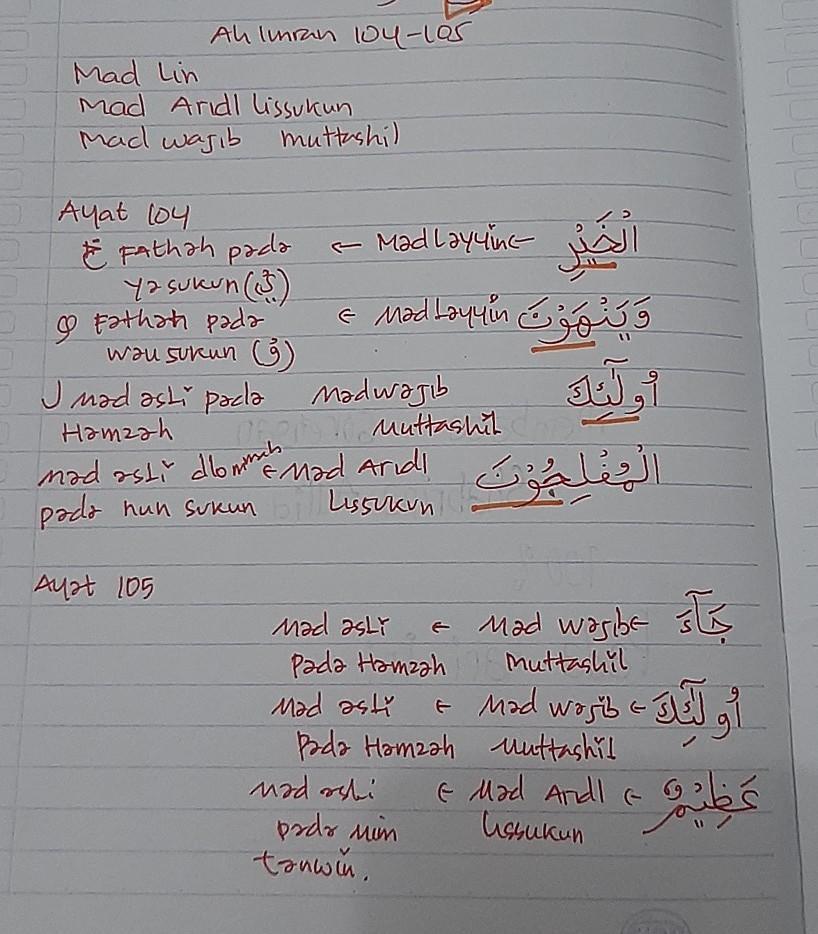 Ali Imran 104-105
Mad Lin
Mad Aridl Lissukun
Mad wajib muttashil
Ayat 104
Fathah pada ← Mad Layyin ← الْخَيْرِ
ya sukun (يْ)
Fathah pada ← Mad Layyin وَيَنْهَوْنَ
wau sukun (وْ)
mad asli pada Mad wajib أُولَٓئِكَ
Hamzah Muttashil
mad asli dlommah ← Mad Aridl الْمُفْلِحُوْنَ
pada nun sukun Lissukun
Ayat 105
Mad asli ← Mad wajib ← جَآءَ
Pada Hamzah Muttashil
Mad asli ← Mad wajib ← أُولَٓئِكَ
Pada Hamzah Muttashil
Mad asli ← Mad Aridl ← عَظِيْمٌ
pada mim Lissukun
tanwin.